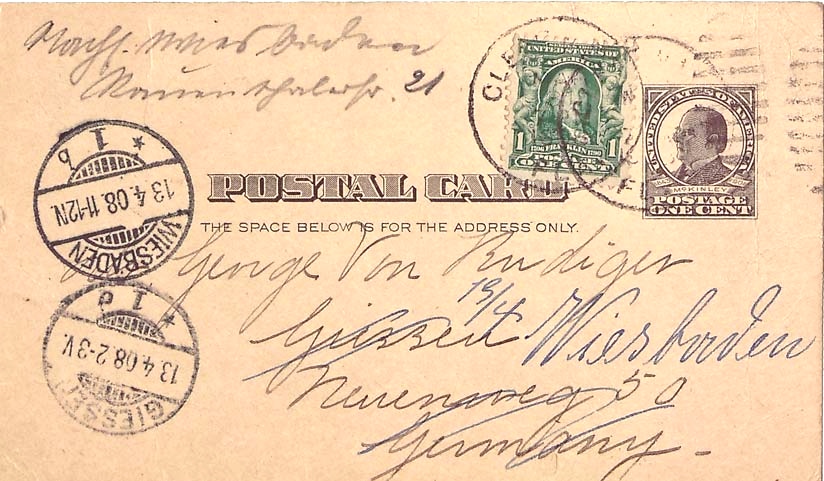 Nach Wiesbaden
Mauenthalerstr. 21
UNITED STATES OF
AMERICA
1 1
1706 FRANKLIN 1790
POSTAGE
ONE CENT
UNITED STATES OF AMERICA
McKINLEY
POSTAGE
ONE CENT
* 1 b
13.4.08.11-12N.
WIESBADEN
POSTAL CARD
THE SPACE BELOW IS FOR THE ADDRESS ONLY.
George Von Rudiger
19/4
Giessen Wiesbaden
Neuenweg 50
Germany
* 1 d
13.4.08.2-3V.
GIESSEN